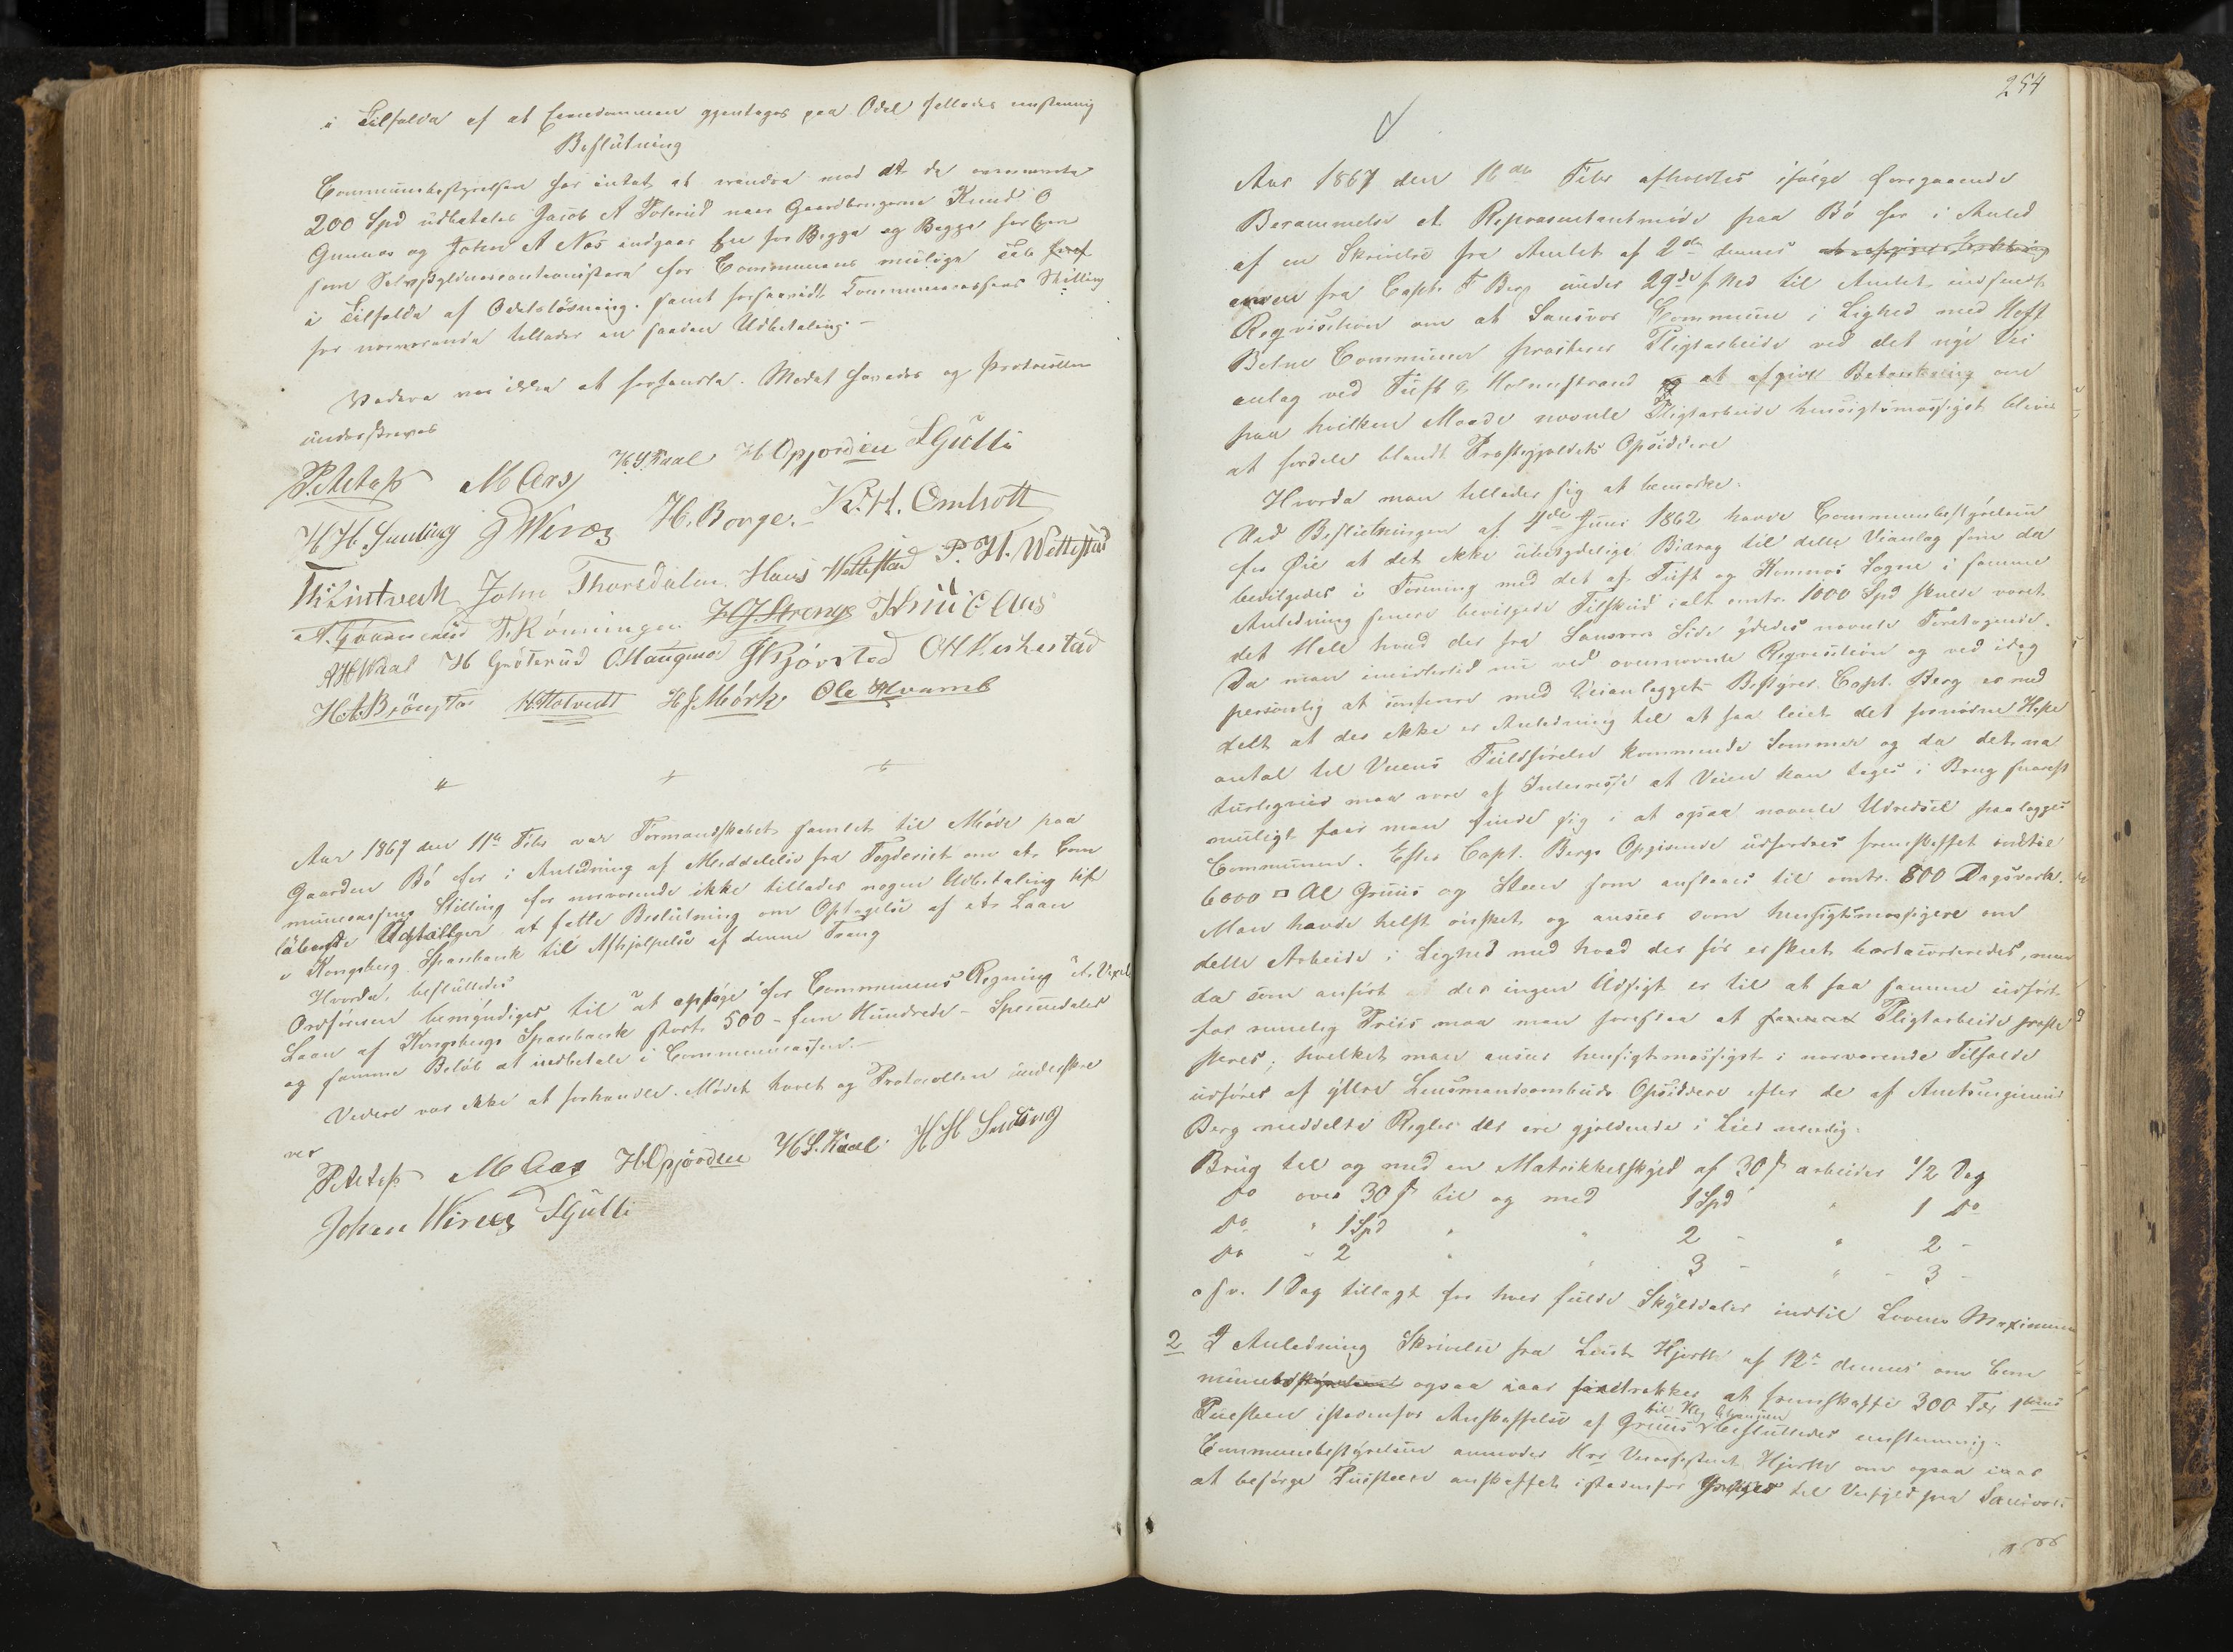 i Tilfælde af at Eiendommen gjentages paa Odel heftedes enstemmig
Beslutning
Communebestyrelsen har intet at erindre mod at de ovennævnte
200 Spd udbetales Jacob A Foslerud naar Gaardbrugerne Knud O
Gunnes og John A Næs indgaar En for Begge og Begge for Een
som Selvskyldnercautionister for Communens mulige Tab heraf
i Tilfælde af Odelsløsning. samt forsaavidt Communecassens Stilling
for nærværende tillader en saadan Udbetaling.-
Videre var ikke at forhandle. Mødet hævedes og Protocollen
underskreves
M Aas H S. Kaal H Opjorden S Gulli
H H Sunding J Wirex H. Borge. K. H. Omholt
Th Lintvedt John Thorsdalen Hans Wettestad P. H. Wettestad
T. Rönningen Knud C Aas
A H Kaal H Gröterud O. Haugmo O H Kirkestad
H. A. Bjöngto H. Holtvedt H J Mörk Ole Kvamb
Aar 1867 den 11te Febr var Formandskabet samlet til Møde paa
Gaarden Bö for i Anledning af Meddelelse fra Fogderiet om at Com
munecassens Stilling for nærværende ikke tillader nogen Udbetaling til
løbende Udgifter at fatte Beslutning om Optagelse af et Laan
i Kongsberg Sparebank til Afhjælpelse af denne Trang
Hvorda, besluttedes
Ordføreren bemyndiges til at optage for Communens Regning et Vexel
Laan af Kongsbergs Sparebank stort 500 - fem Hundrede - Speciedaler
og samme Beløb at indbetale i Communecassen.-
Videre var ikke at forhandle. Mødet hævet og Protocollen underskre
ves
M Aas H. Opjorden H S. Kaal H H Sunding
Johan Wirex S Gulli
254
Aar 1867 den 16de Febr afholdtes ifølge foregaaende
Berammelse et Repræsentantmøde paa Bö for i Anled
af en Skrivelse fra Amtet af 2de dennes
fra Capt. F Berg under 29de f. Md til Amtet indsendt
Reqvisition om at Sandsvær Commune i Lighed med Hoff
Botne Communer præsterer Pligtarbeide ved det nye Vei
anlæg ved Tuft & Holmestrand og at afgive Betænkning om
paa hvilken Maade nævnte Pligtarbeide hensigtsmæssigst bliver
at fordele blandt Præstegjeldets Opsiddere
Hvorda man tillader sig at bemærke:
Ved Beslutningen af 4de Juni 1862 havde Communebestyrelsen
for Øie at det ikke ubetydelige Bidrag til dette Veianlæg som da
bevilgedes i Forening med det af Tuft og Hemnæs Sogne i samme
Anledning senere bevilgede Tilskud ialt omtr. 1000 Spd skulde være
det Hele hvad der fra Sandsvær Side ydedes nævnte Foretagende.
Da man imidlertid nu ved ovennævnte Reqvisition og ved idag
personlig at conferere med Veianlæggets Bestyrer Capt. Berg er med
delt at der ikke er Anledning til at faa leiet det fornødne Heste
antal til Veiens Fuldførelse kommende Sommer og da det na
turligviis maa være af Interesse at Veien kan tages i Brug snarest
muligt faar man finde sig i at ogsaa nævnte Udredsel paalægges
Communen. Efter Capt. Bergs Opgivende udfordres fremskaffet indtil
6000 □ Al Gruus og Steen som anslaaes til omtr. 800 Dagsværk.
Man havde helst ønsket og ansees som hensigtsmæssigere om
dette Arbeide i Lighed med hvad der før er skeet bortaccorderedes, men
da som anført der ingen Udsigt er til at faa samme udført
for rimelig Priis maa man foreslaa at Pligtarbeide præste
steres; hvilket man anseer hensigtsmæssigst i nærværende Tilfælde
udføres af ytre Lensmandsombuds Opsiddere efter de af Amtsingeniør
Berg meddelte Regler der ere gjældende i Lier nemlig:
Brug til og med en Matrikkelskyld af 30 ß arbeider 1/2 Dag
Do over 30 ß til og med 1 Spd " 1 Do
Do " 1 Spd " " 2 - " 2 -
Do - 2 " " 3 - " - 3 -
o s v. 1 Dag tillagt for hver fulde Skylddaler indtil Lovens Maximum
2 I Anledning Skrivelse fra Leut. Hjorth af 12te dennes om Com
munen ogsaa iaar foretrækker at fremskaffe 300
Puksteen istedenfor Anskaffelse af Gruus besluttedes enstemmig:
Communebestyrelsen anmoder Hrr Veiassistent Hjorth om ogsaa iaar
at besørge Puksteen anskaffet istedenfor til Veifyld paa Sandsværs